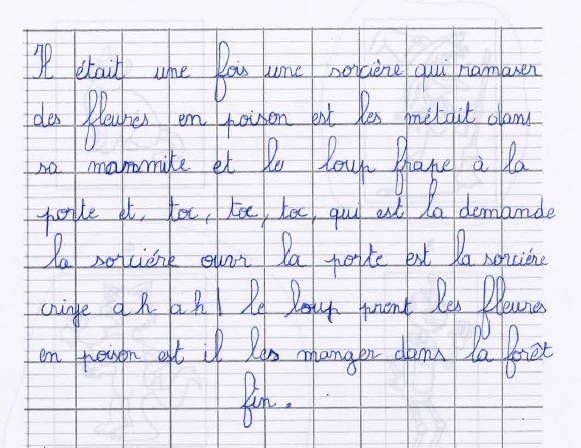 Il était une fois une sorcière qui ramaser
des fleures en poison est les métait dans
sa marmmite et le loup frape à la
porte et, toc, toc, toc, qui est la demande
la sorciére ouvr la porte est la sorciére
criye a h a h ! le loup prent les fleures
en poison est il les manger dans la forêt
fin.